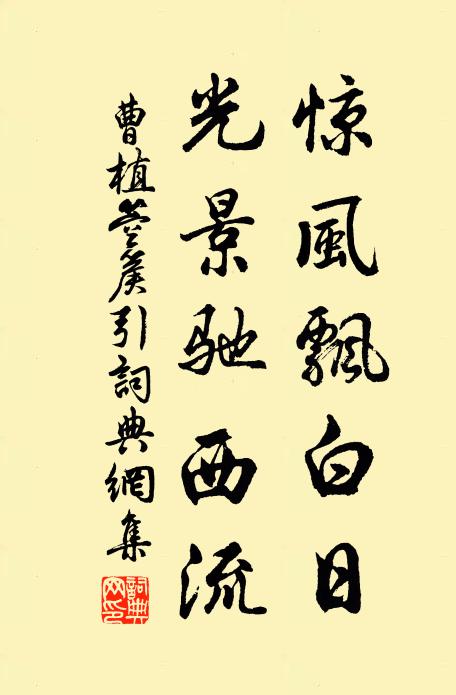 惊風飄白日
光景馳西流
曹植箜篌引詞典網集
詞典網印